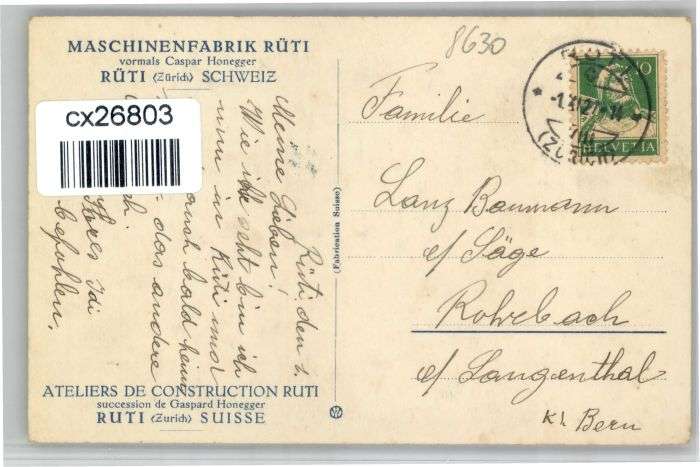 MASCHINENFABRIK RÜTI
vormals Caspar Honegger
RÜTI (Zürich) SCHWEIZ
cx26803
Rüti, den 1.
Meine Lieben!
Wie ihr seht bin ich
nun in Rüti
auch bald heim
das andere
Idi
befohlen.
ATELIERS DE CONSTRUCTION RUTI
succession de Gaspard Honegger
RUTI (Zurich) SUISSE
(Fabrication Suisse)
8630
(ZÜRICH)
10
HELVETIA
Familie
Lanz Baumann
e/ Säge
Rohrbach
e/ Langenthal
Kt. Bern